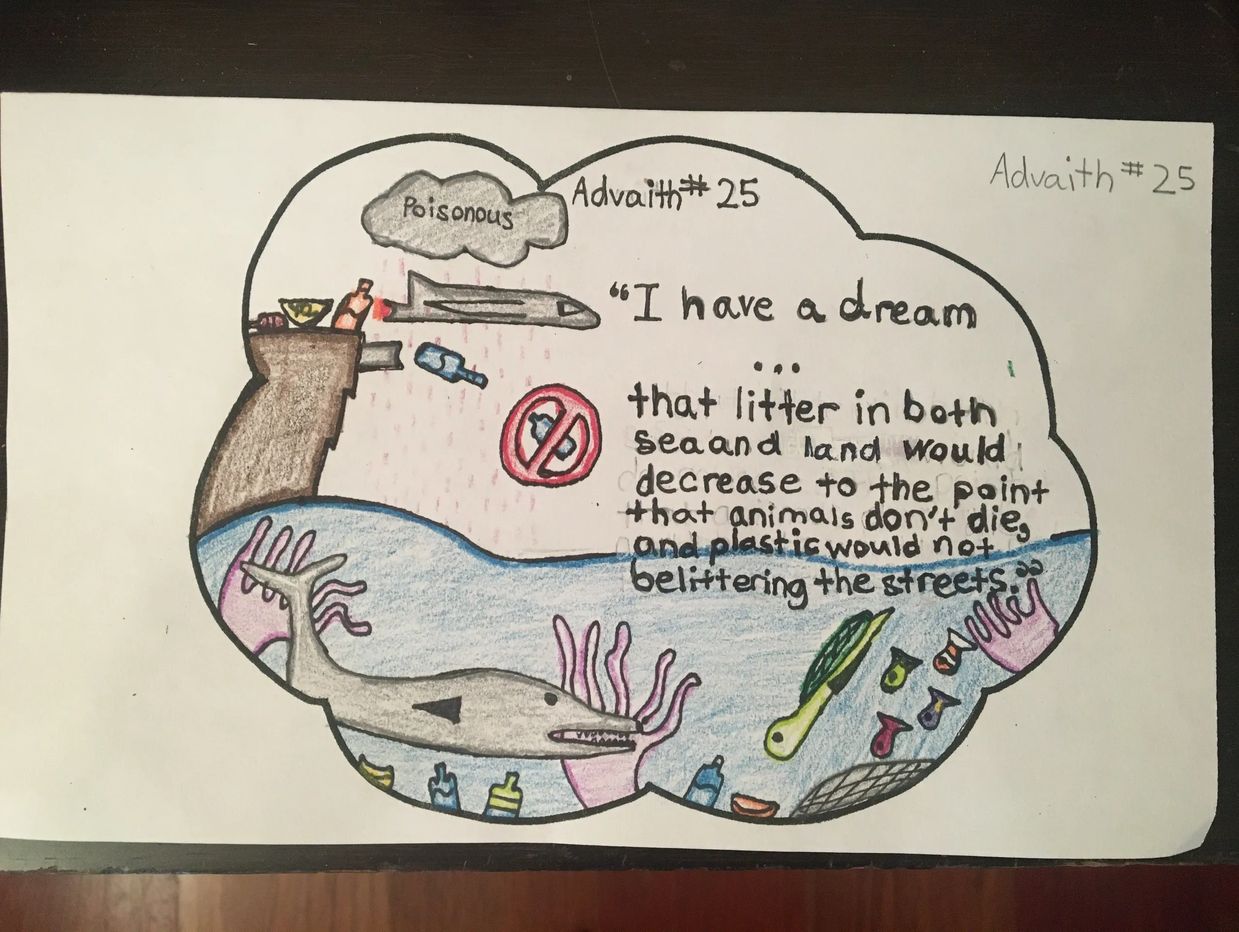 Advaith #25
Poisonous
Advaith #25
"I have a dream
...
that litter in both
sea and land would
decrease to the point
that animals don't die,
and plastic would not
belittering the streets."